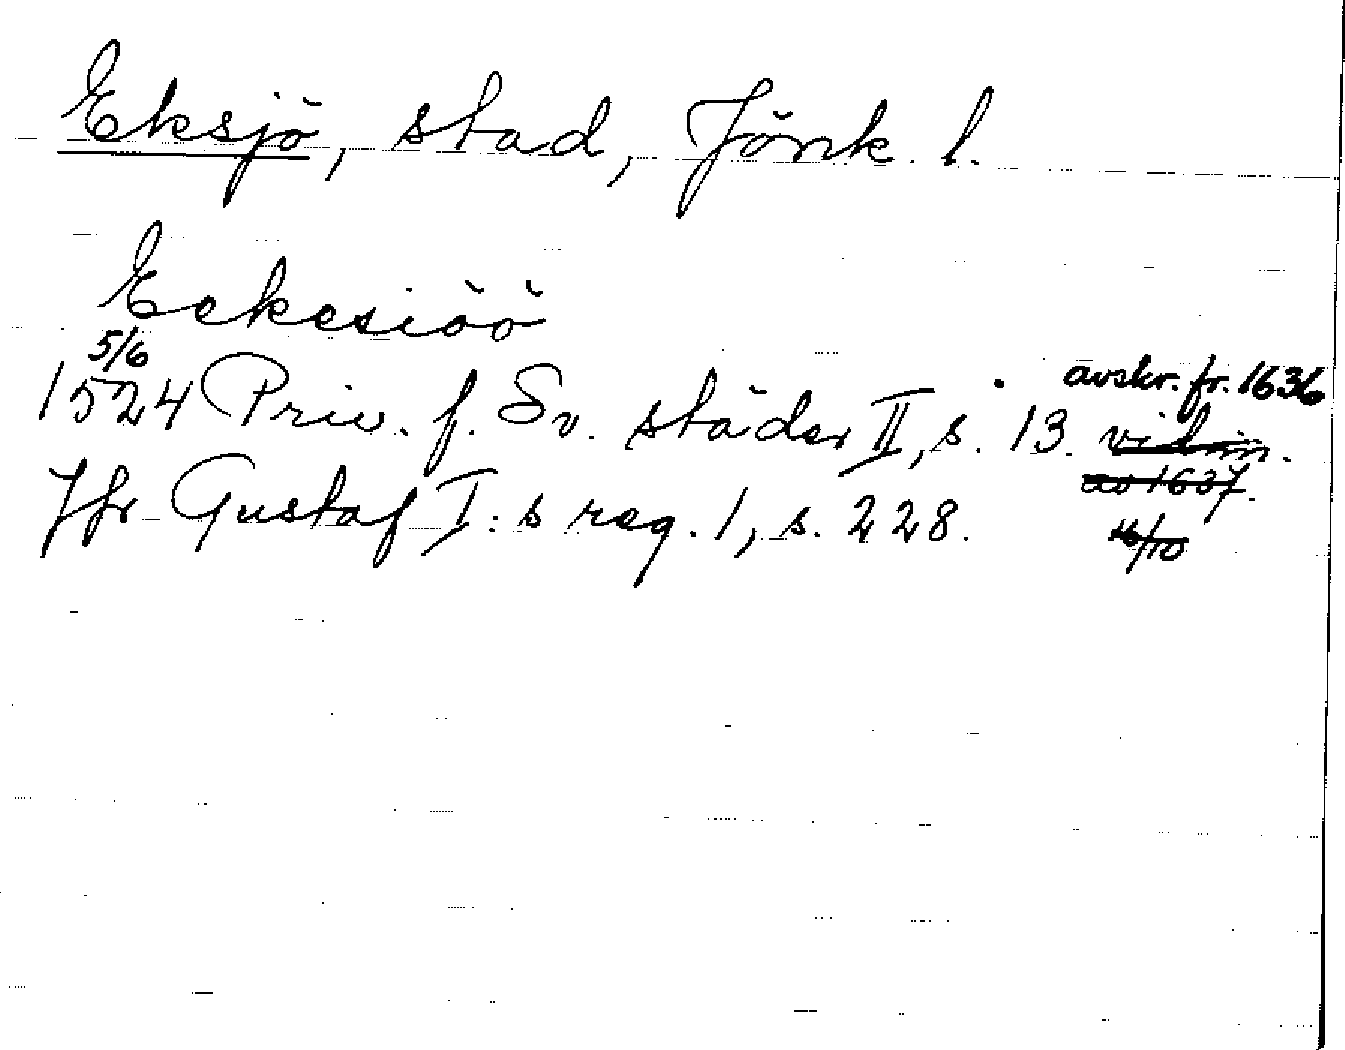 Eksjö, stad, Jönk. l.
Eekesiöö
5/6
1524 Priv. f. Sv. städer II, s. 13. avskr. fr. 1636
vidim.
av 1637.
Jfr Gustaf I:s reg. 1, s. 228.
16/10